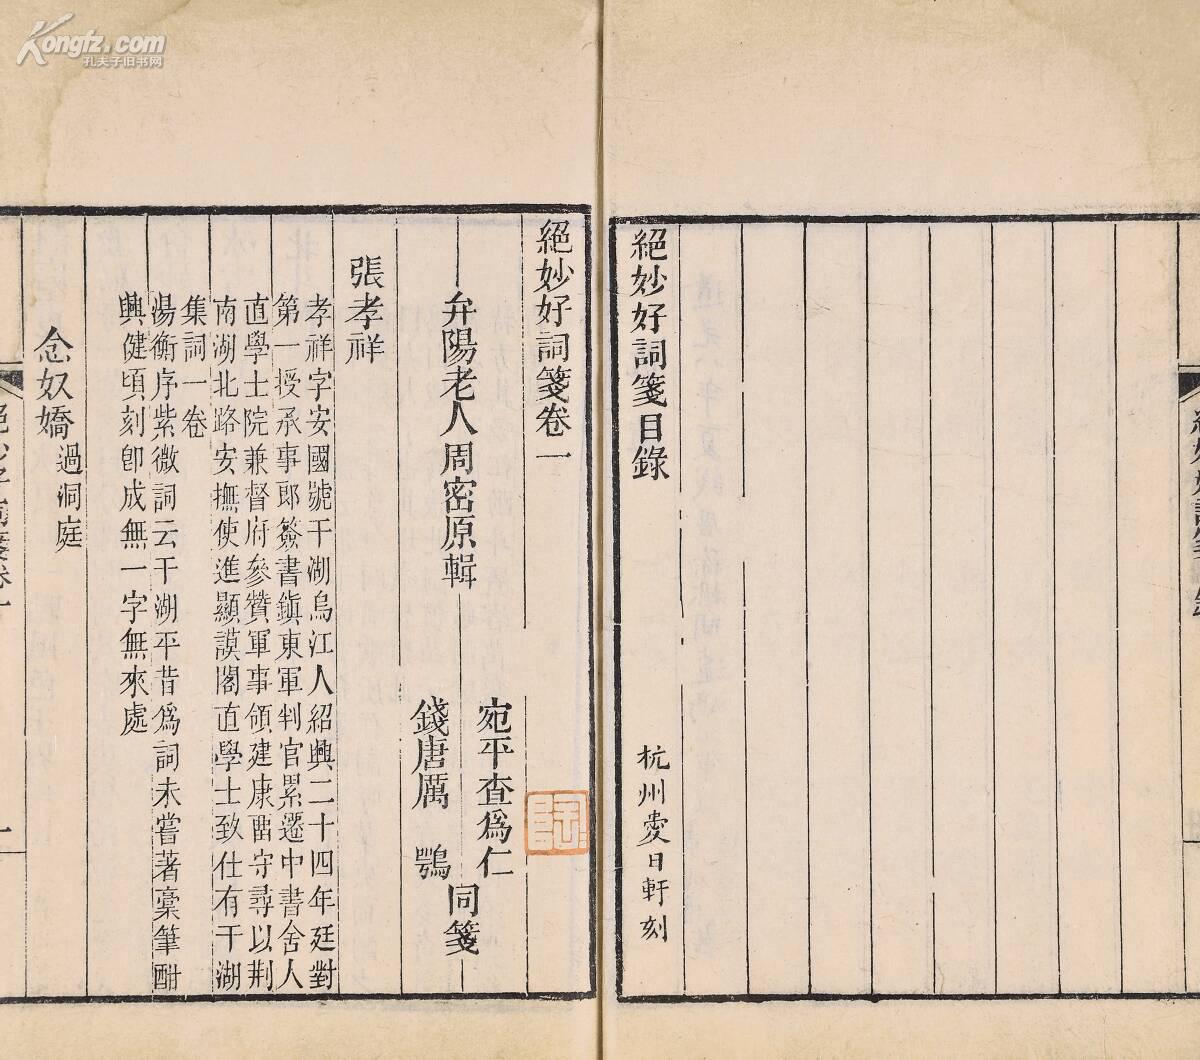 絕妙好詞箋目錄
杭州愛日軒刻
絕妙好詞箋卷一
弁陽老人周密原輯
宛平查為仁
錢唐厲鶚
同箋
張孝祥
孝祥字安國號于湖烏江人紹興二十四年廷對
第一授承事郎簽書鎮東軍判官累遷中書舍人
直學士院兼督府參贊軍事領建康留守尋以荆
南湖北路安撫使進顯謨閣直學士致仕有于湖
集詞一卷
湯衡序紫微詞云于湖平昔為詞未嘗著稾筆酣
興健頃刻卽成無一字無來處
念奴嬌過洞庭
Kongfz.com
孔夫子旧书网